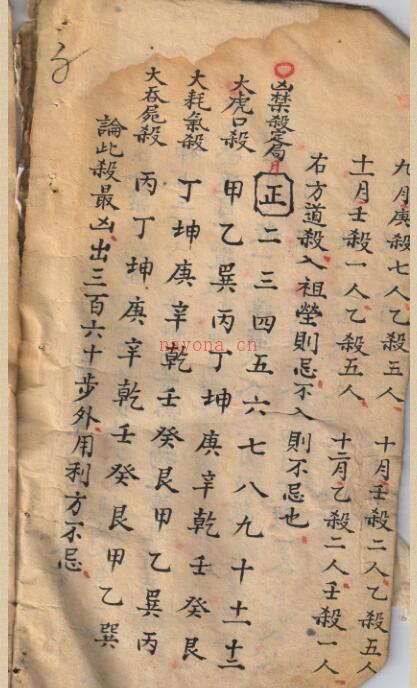 九月庚殺七人乙殺三人　十月壬殺二人乙殺五人
十一月壬殺一人乙殺五人　十二月乙殺二人壬殺一人
右方道殺入祖塋則忌不入則不忌也
凶禁殺定局月正二三四五六七八九十十一十二
大虎口殺　甲乙巽丙丁坤庚辛乾壬癸艮
大耗氣殺　丁坤庚辛乾壬癸艮甲乙巽丙
大吞屍殺　丙丁坤庚辛乾壬癸艮甲乙巽
論此殺最凶出三百六十步外用利方不忌
nayona.cn